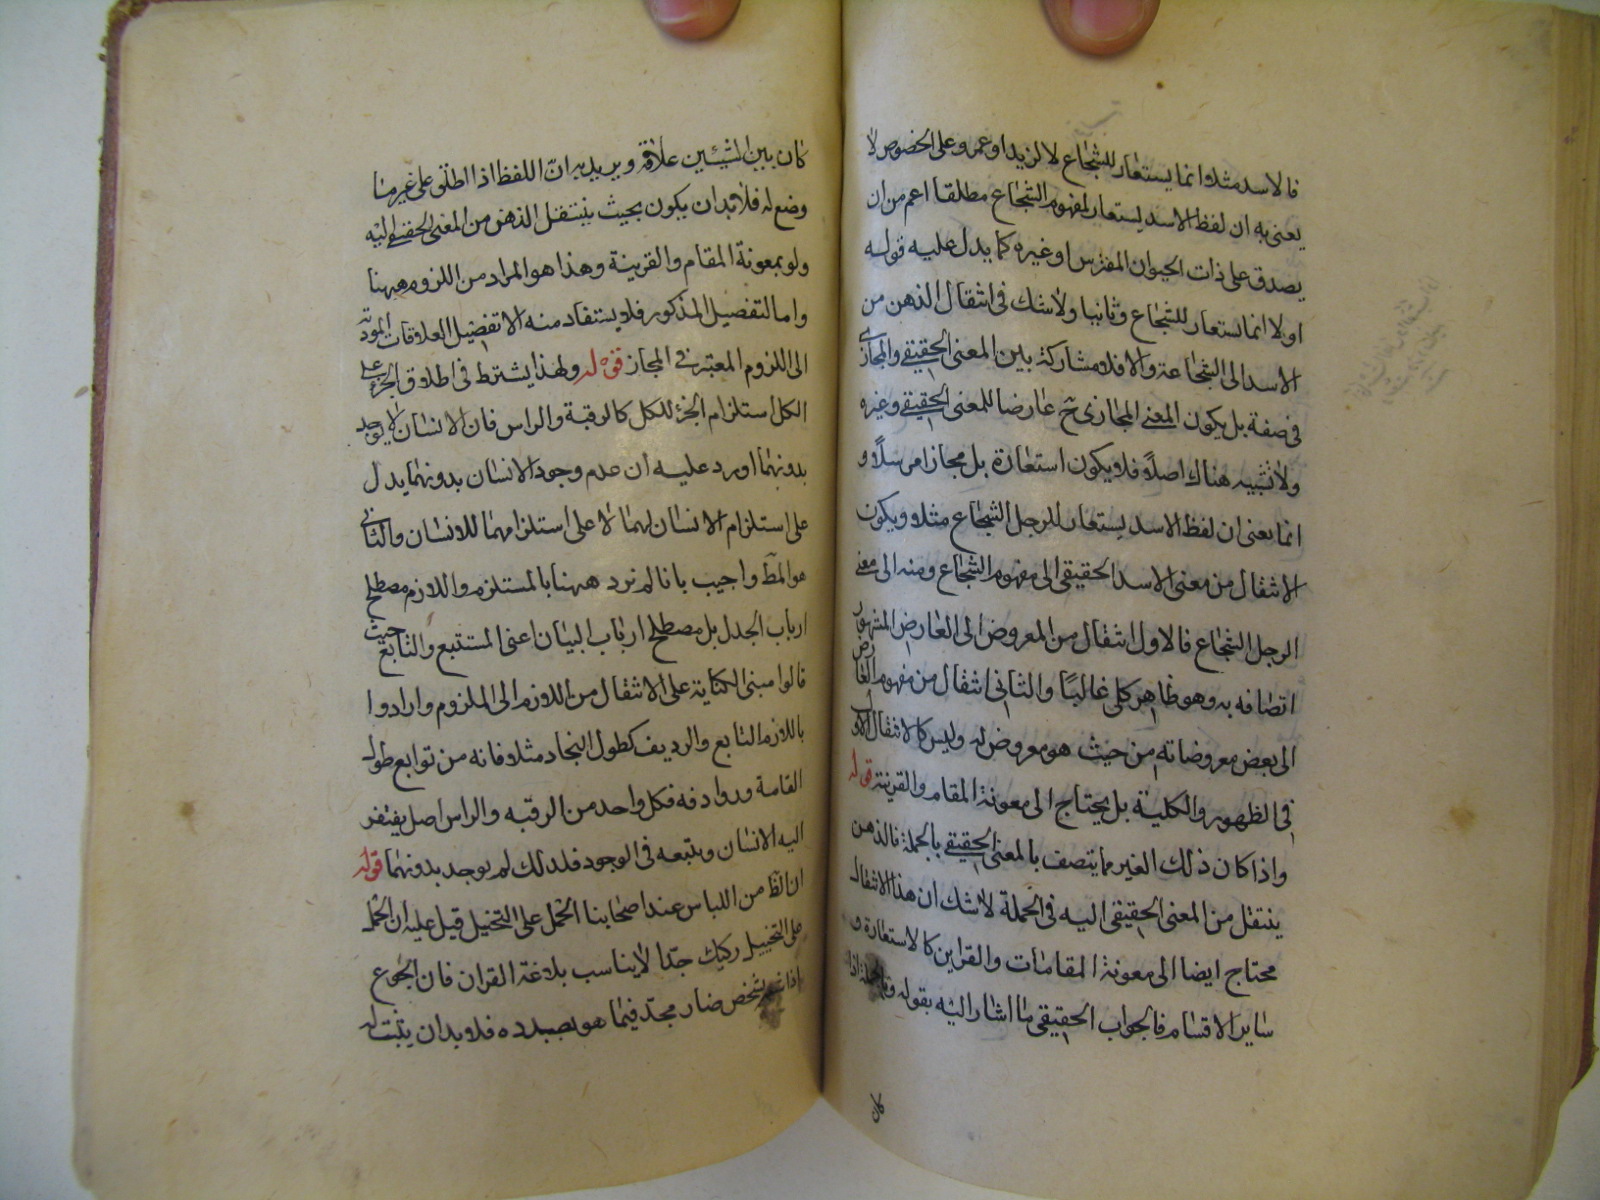 فالاسد مثلا انما يستعار للشجاع لا لزيد او عمرو على الخصوص لا
يعنى به ان لفظ الاسد يستعار لمفهوم الشجاع مطلقا اعم من ان
يصدق على ذات الحيوان المفترس او غيره كما يدل عليه قوله
اولا انما يستعار للشجاع وثانيا ولا شك فى انتقال الذهن من
الاسد الى الشجاعة والا فلا مشاركة بين المعنى الحقيقى والمجازى
فى صفة بل يكون المعنى المجازى ح عارضا للمعنى الحقيقى وغيره
ولا تشبيه هناك اصلاً فلا يكون استعارة بل مجازا مرسلاً و
انما يعنى ان لفظ الاسد يستعار للرجل الشجاع مثلا ويكون
الانتقال من معنى الاسد الحقيقى الى مفهوم الشجاع ومنه الى معنى
الرجل الشجاع فالاول انتقال من المعروض الى العارض المشهور
اتصافه به وهو ظاهر كلى غالبًا والثانى انتقال من مفهوم العارض
الى بعض معروضاته من حيث هو معروض له وليس كالانتقال الاول
فى الظهور والكلية بل يحتاج الى معونة المقام والقرينة قوله
واذا كان ذلك الغير مما يتصف بالمعنى الحقيقى بالجملة فالذهن
ينتقل من المعنى الحقيقى اليه فى الجملة لا شك ان هذا الانتقال
محتاج ايضا الى معونة المقامات والقراين كالاستعارة و
ساير الاقسام فالجواب الحقيقى ما اشار اليه بقوله وبالجملة اذا
كان
كان بين الشيئين علاقة ويريد به انّ اللفظ اذا اطلق على غير ما
وضع له فلا بد ان يكون بحيث ينتقل الذهن من المعنى الحقيقى اليه
ولو بمعونة المقام والقرينة وهذا هو المراد من اللزوم ههنا
واما التفصيل المذكور فلا يستفاد منه الا تفصيل العلاقات المودّية
الى اللزوم المعتبر فى المجاز قوله ولهذا يشترط فى اطلاق الجزء على
الكل استلزام الجزء للكل كالرقبة والراس فان الانسان لا يوجد
بدونهما اورد عليه ان عدم وجود الانسان بدونهما يدل
على استلزام الانسان لهما لا على استلزامهما للانسان والثانى
هو المط واجيب بانا لم نرد ههنا بالمستلزم واللازم مصطلح
ارباب الجدل بل مصطلح ارباب البيان اعنى المستتبع والتابع حيث
قالوا مبنى الكناية على الانتقال من اللازم الى الملزوم وارادوا
باللازم التابع والرديف كطول النجاد مثلا فانه من توابع طول
القامة وروادفه فكل واحد من الرقبه والراس اصل يفتقر
اليه الانسان ويتبعه فى الوجود فلذلك لم يوجد بدونهما قوله
ان الظ من اللباس عند اصحابنا الحمل على التخييل قيل عليه ان الحمل
على التخييل ركيك جدّا لا يناسب بلاغة القران فان الجوع
اذا بشخص ضار مجدّ فيما هو بصدده فلا بد ان يثبت له